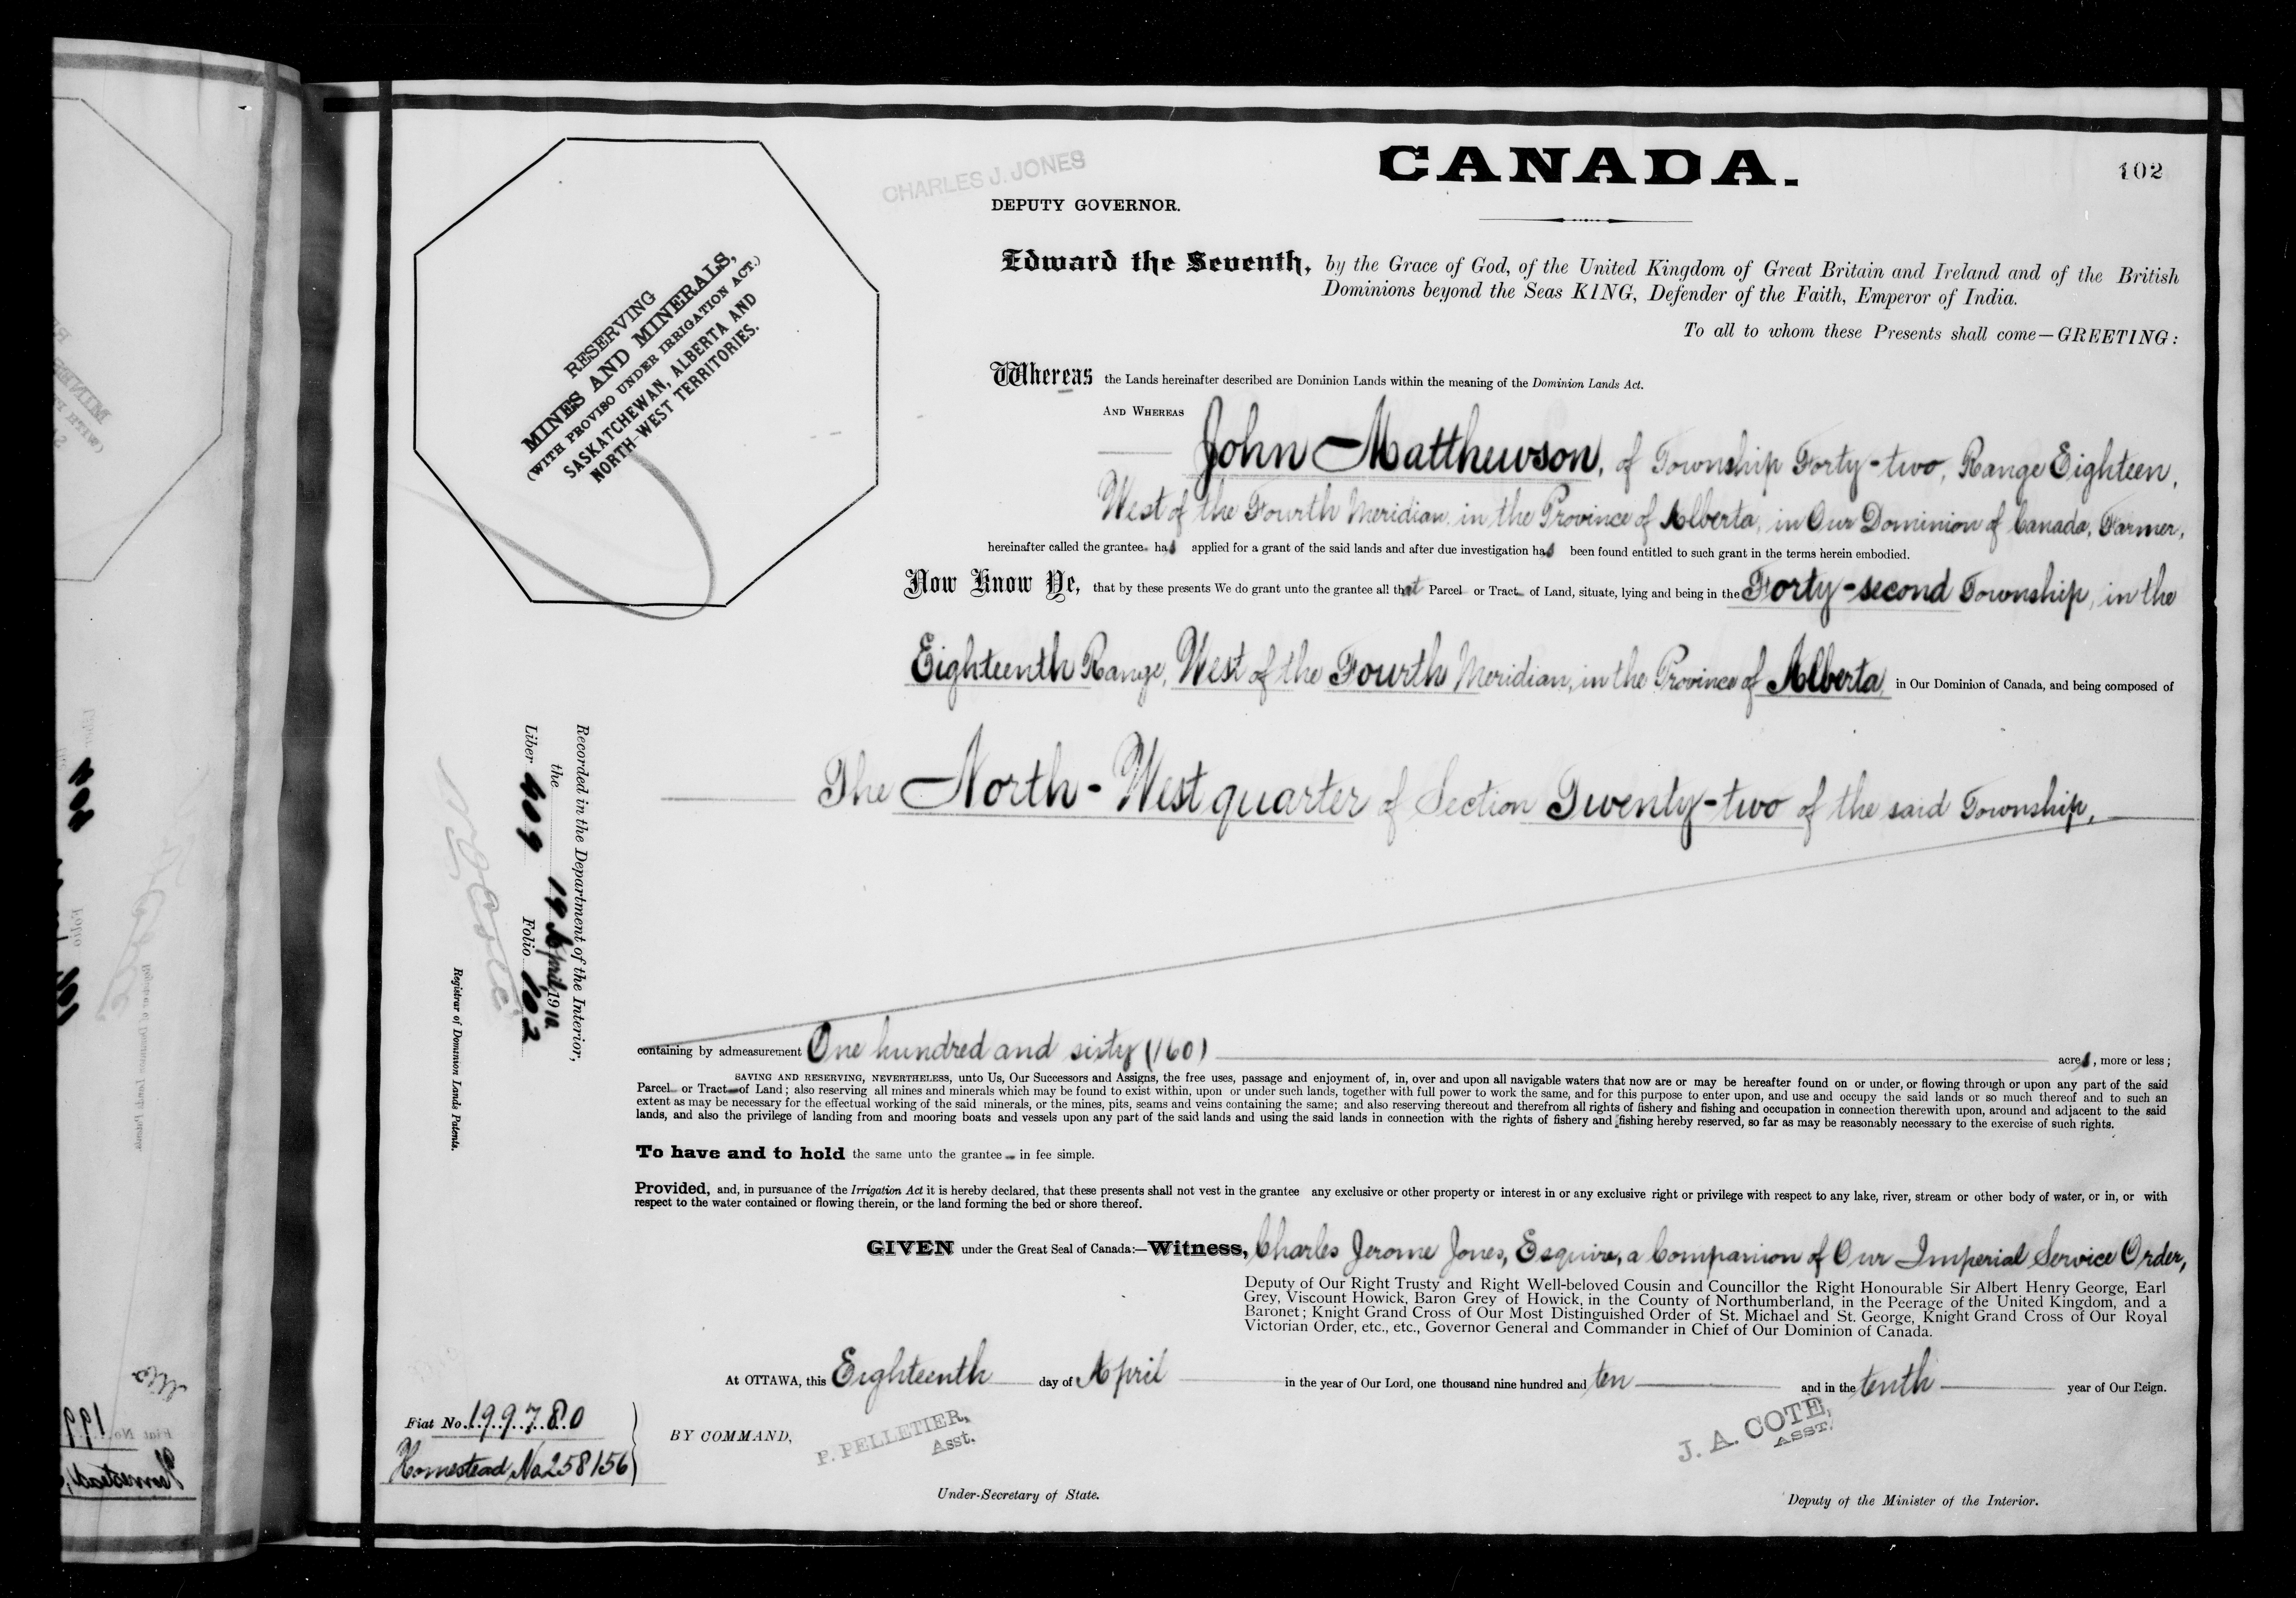 CHARLES J. JONES
CANADA.
102
DEPUTY GOVERNOR.
RESERVING
MINES AND MINERALS,
(WITH PROVISO UNDER IRRIGATION ACT.)
SASKATCHEWAN, ALBERTA AND
NORTH-WEST TERRITORIES.
Edward the Seventh, by the Grace of God, of the United Kingdom of Great Britain and Ireland and of the British
Dominions beyond the Seas KING, Defender of the Faith, Emperor of India.
To all to whom these Presents shall come—GREETING:
Whereas the Lands hereinafter described are Dominion Lands within the meaning of the Dominion Lands Act.
AND WHEREAS
John Matthewson, of Township Forty-two, Range Eighteen,
West of the Fourth Meridian, in the Province of Alberta, in Our Dominion of Canada, Farmer,
hereinafter called the grantee has applied for a grant of the said lands and after due investigation has been found entitled to such grant in the terms herein embodied.
Now Know Ye, that by these presents We do grant unto the grantee all that Parcel or Tract of Land, situate, lying and being in the Forty-second Township, in the
Eighteenth Range, West of the Fourth Meridian, in the Province of Alberta, in Our Dominion of Canada, and being composed of
The North-West quarter of Section Twenty-two of the said Township,
containing by admeasurement One hundred and sixty (160) acres, more or less;
SAVING AND RESERVING, NEVERTHELESS, unto Us, Our Successors and Assigns, the free uses, passage and enjoyment of, in, over and upon all navigable waters that now are or may be hereafter found on or under, or flowing through or upon any part of the said
Parcel or Tract of Land; also reserving all mines and minerals which may be found to exist within, upon or under such lands, together with full power to work the same, and for this purpose to enter upon, and use and occupy the said lands or so much thereof and to such an
extent as may be necessary for the effectual working of the said minerals, or the mines, pits, seams and veins containing the same; and also reserving thereout and therefrom all rights of fishery and fishing and occupation in connection therewith upon, around and adjacent to the said
lands, and also the privilege of landing from and mooring boats and vessels upon any part of the said lands and using the said lands in connection with the rights of fishery and fishing hereby reserved, so far as may be reasonably necessary to the exercise of such rights.
To have and to hold the same unto the grantee in fee simple.
Provided, and, in pursuance of the Irrigation Act it is hereby declared, that these presents shall not vest in the grantee any exclusive or other property or interest in or any exclusive right or privilege with respect to any lake, river, stream or other body of water, or in, or with
respect to the water contained or flowing therein, or the land forming the bed or shore thereof.
GIVEN under the Great Seal of Canada:—Witness, Charles Jerome Jones, Esquire, a Companion of Our Imperial Service Order,
Deputy of Our Right Trusty and Right Well-beloved Cousin and Councillor the Right Honourable Sir Albert Henry George, Earl
Grey, Viscount Howick, Baron Grey of Howick, in the County of Northumberland, in the Peerage of the United Kingdom, and a
Baronet; Knight Grand Cross of Our Most Distinguished Order of St. Michael and St. George, Knight Grand Cross of Our Royal
Victorian Order, etc., etc., Governor General and Commander in Chief of Our Dominion of Canada.
At OTTAWA, this Eighteenth day of April in the year of Our Lord, one thousand nine hundred and ten and in the tenth year of Our Reign.
BY COMMAND,
P. PELLETIER,
Asst.
J. A. COTE,
ASST.
Under-Secretary of State.
Deputy of the Minister of the Interior.
Fiat No. 199780
Homestead No 258156
Recorded in the Department of the Interior,
the 19 April, 1910.
Liber 409 Folio 102
Registrar of Dominion Lands Patents.